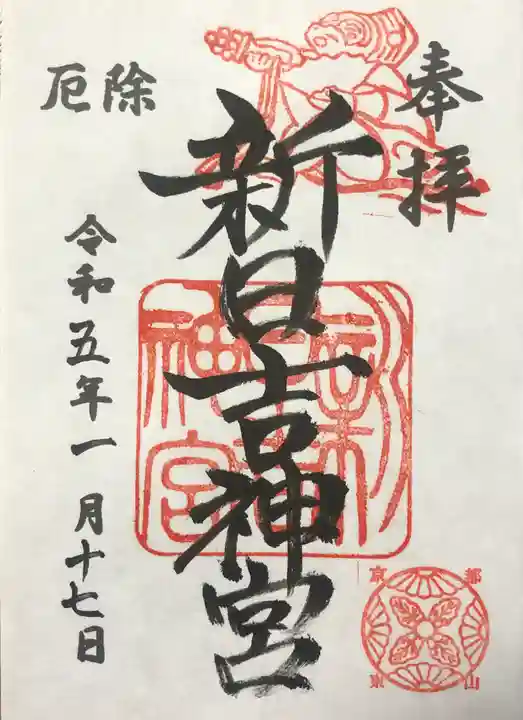 奉拝
新日吉神宮
厄除
令和五年一月十七日
京都
東山